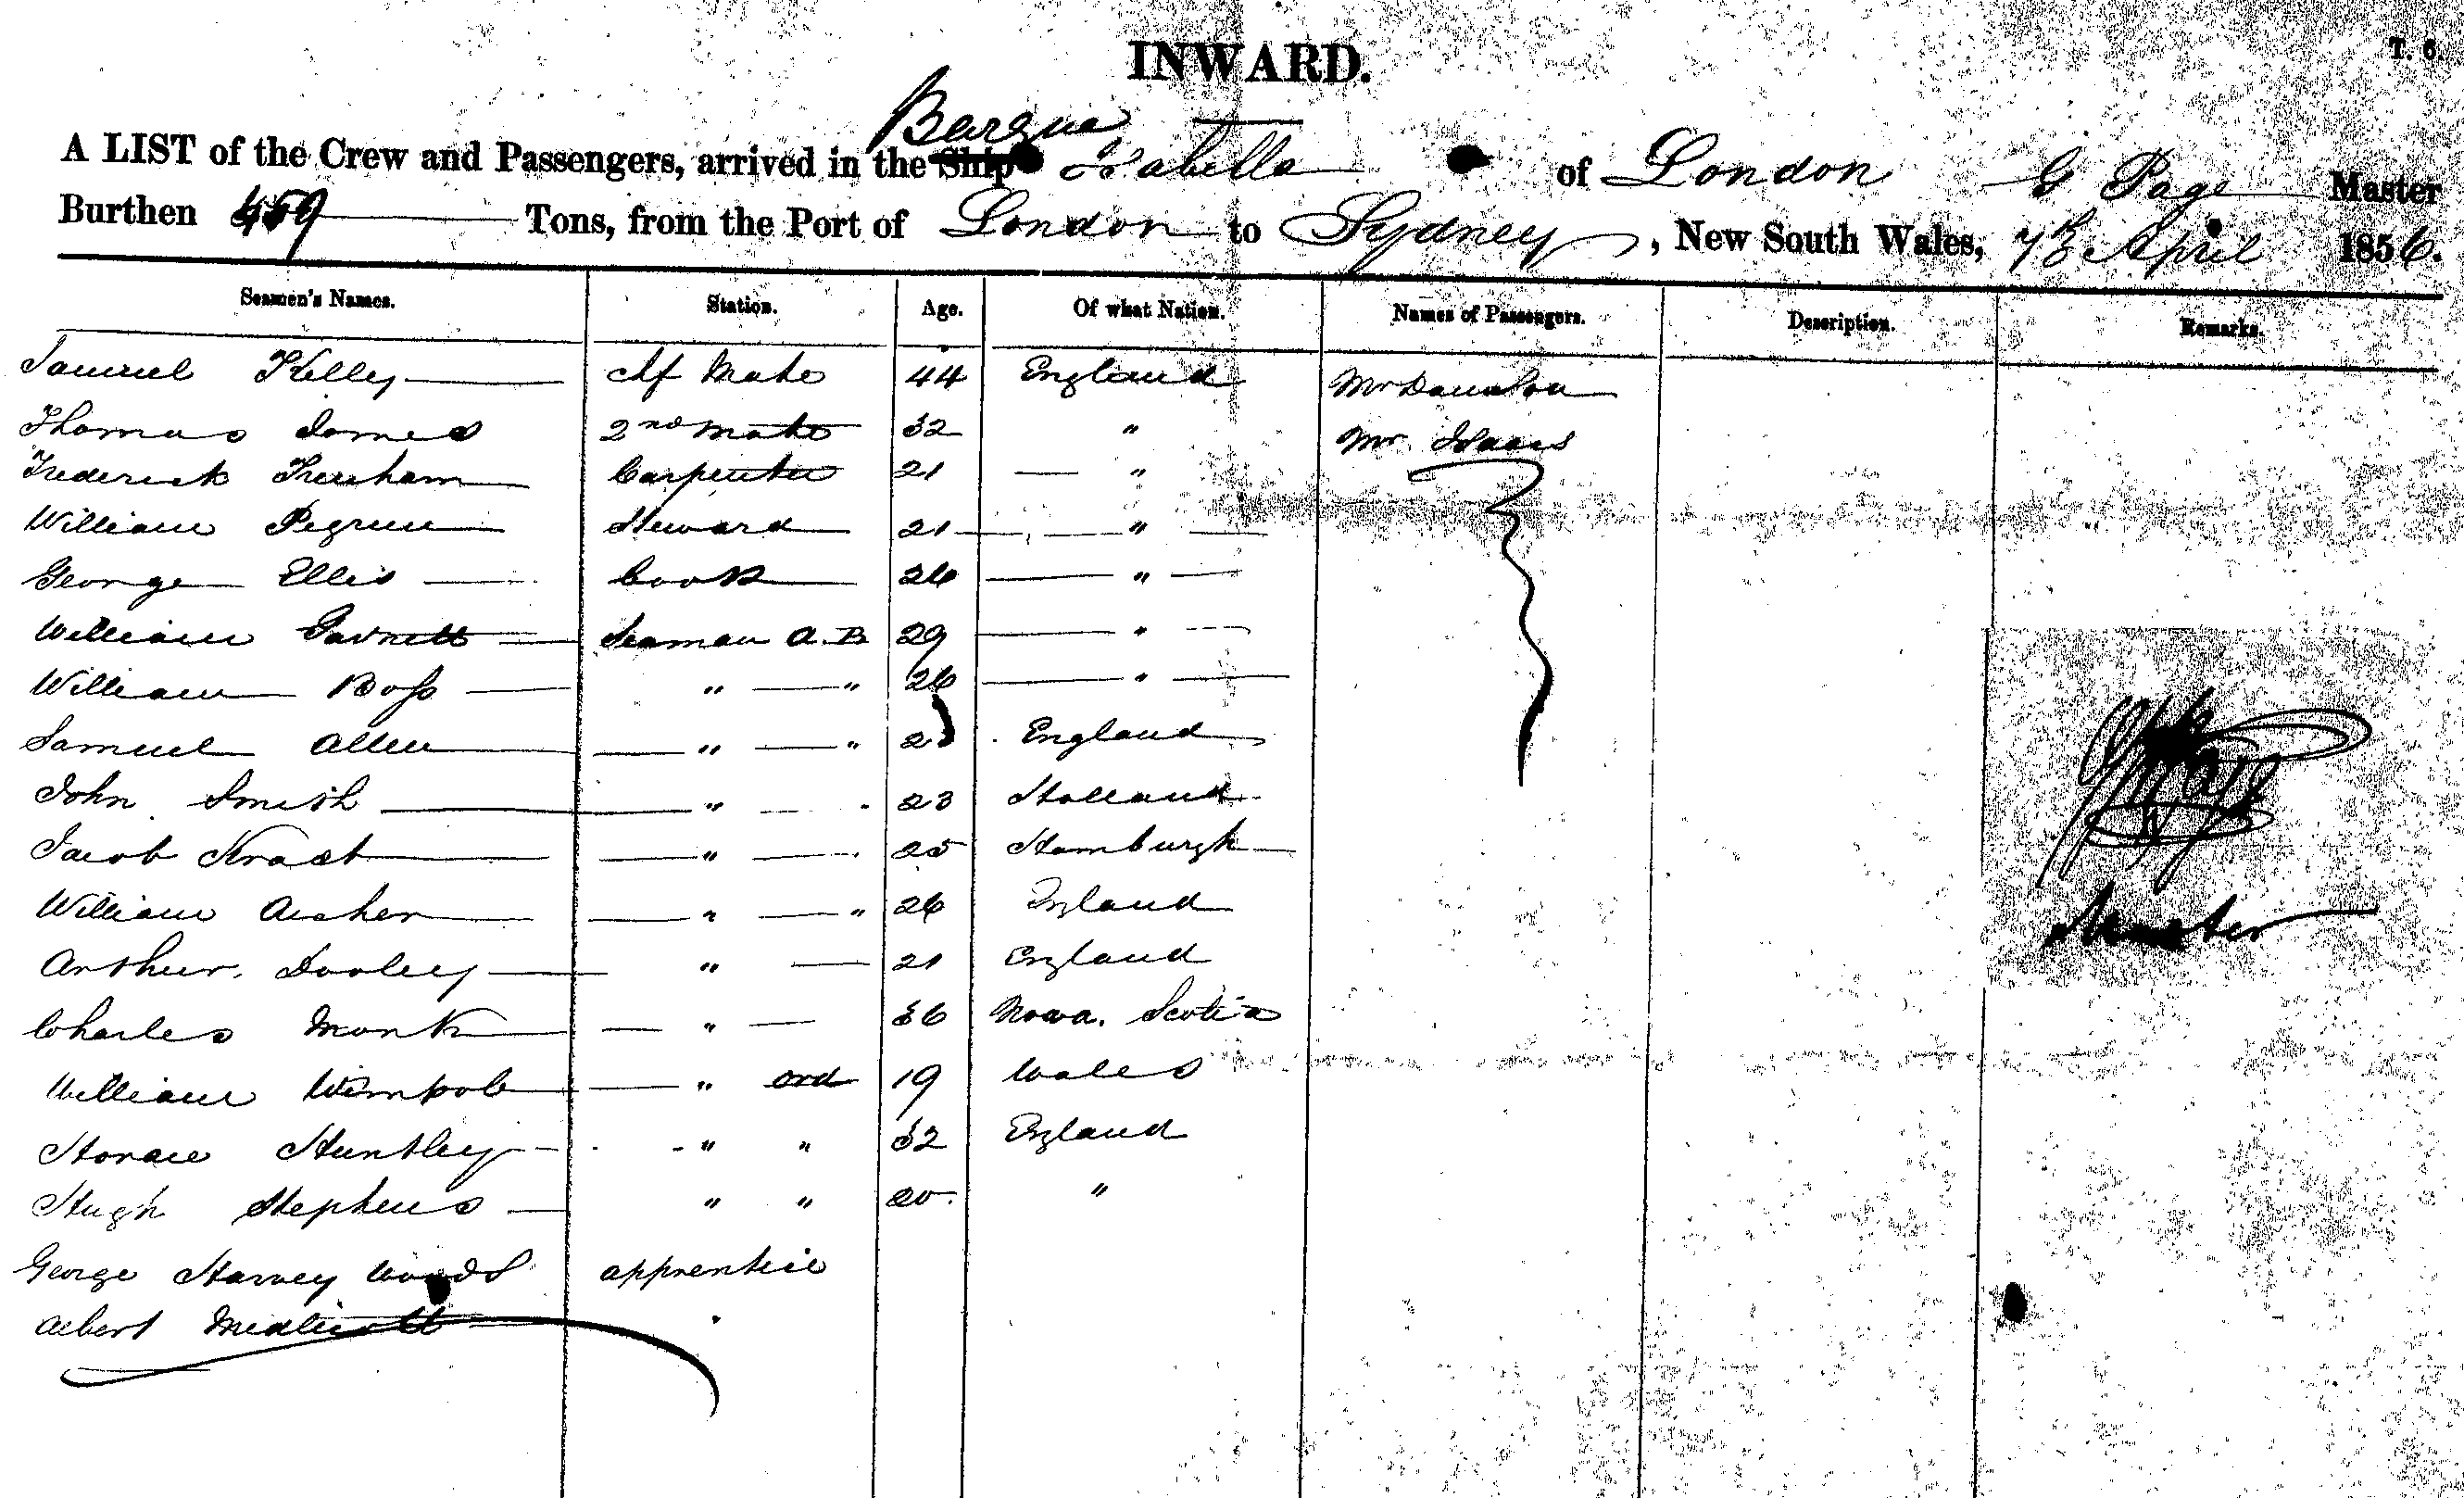 INWARD.
T. 6
Barque
A LIST of the Crew and Passengers, arrived in the Ship Isabella of London G Page Master
Burthen 459 Tons, from the Port of London to Sydney, New South Wales, 7th April 1856.
Seamen's Names. Station. Age. Of what Nation. Names of Passengers. Description. Remarks.
Samuel Kelly Chf Mate 44 England Mr
Thomas James 2nd Mate 32 " Mr Isaacs
Frederick Carpenter 21 "
William Pegrum Steward 21 "
George Ellis Cook 26 "
William Garnett Seaman A.B 29 "
William Boss " " 26 "
Samuel Allen " " England
John Smith " 23 Holland
Jacob " 25 Hamburgh
William Archer " " 26 England
Arthur Dooley " 21 England
Charles Monk " 36 Nova. Scotia
William Wimpole " ord 19 Wales
Horace Huntley " " 32 England
Hugh Stephens " " 20 "
George Harvey Woods apprentice
Albert Medlicott "
Master